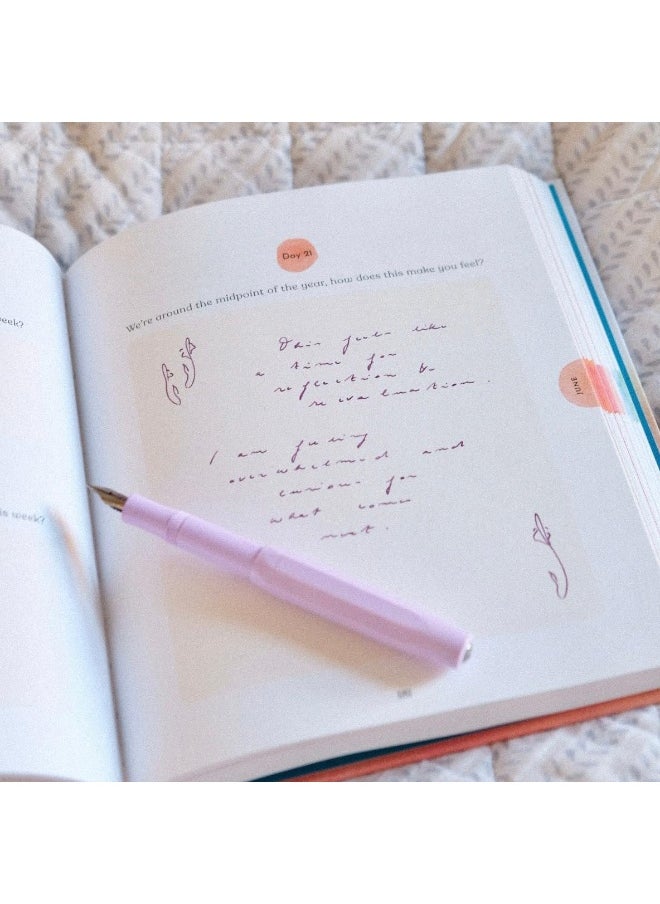 eek?
s week?
Day 21
We're around the midpoint of the year, how does this make you feel?
feels like
a time for
reflection &
reevaluation.
I am feeling
overwhelmed and
curious for
what comes
next.
JUNE